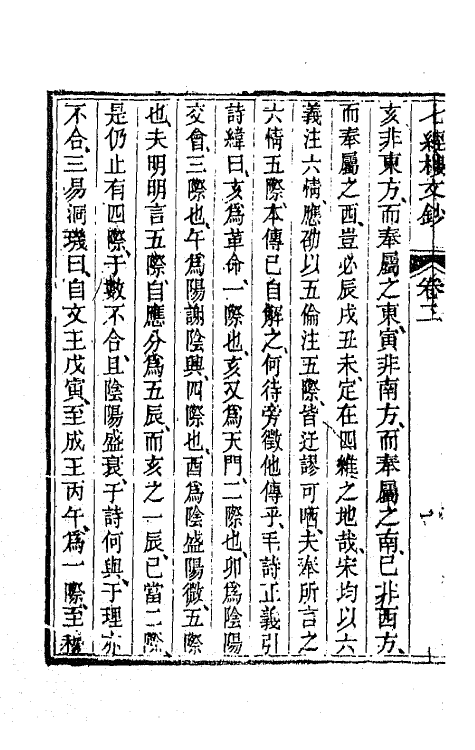 七經樓文鈔 卷二
亥非東方、而奉屬之東、寅非南方、而奉屬之南、巳非西方、
而奉屬之西、豈必辰戌丑未、定在四維之地哉、宋均以六
義注六情、應劭以五倫注五際、皆迂謬可哂、夫奉所言之
六情五際、本傳已自解之、何待旁徵他傳乎、毛詩正義引
詩緯曰、亥為革命、一際也、亥又為天門、二際也、卯為陰陽
交會、三際也、午為陽謝陰興、四際也、酉為陰盛陽微、五際
也、夫明明言五際、自應分為五辰、而亥之一辰、已當二際、
是仍止有四際、于數不合、且陰陽盛衰、于詩何與、于理亦
不合、三易洞璣曰、自文王戊寅、至成王丙午、為一際、至